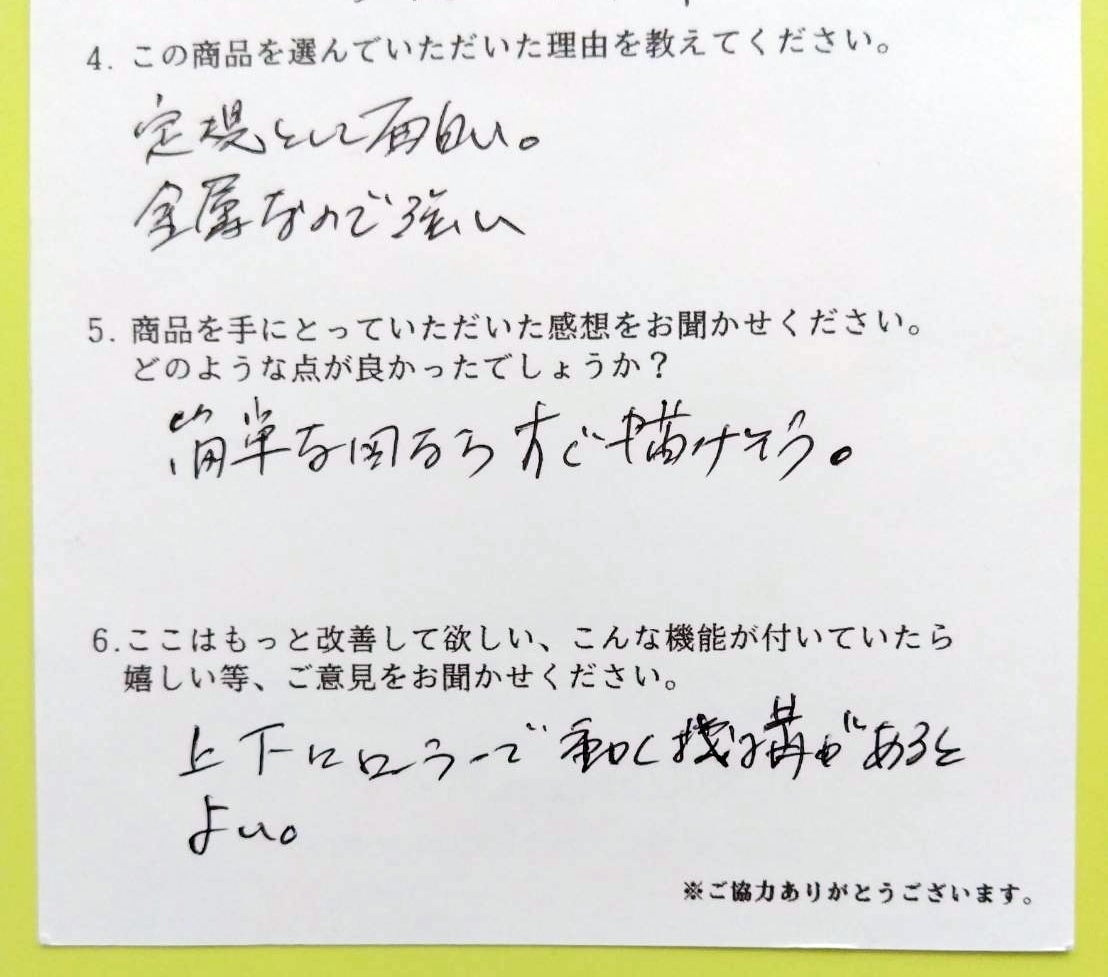 4. この商品を選んでいただいた理由を教えてください。
定規として面白い。
金属なので強い
5. 商品を手にとっていただいた感想をお聞かせください。
どのような点が良かったでしょうか？
簡単な図ならすぐ描けそう。
6.ここはもっと改善して欲しい、こんな機能が付いていたら
嬉しい等、ご意見をお聞かせください。
上下にローラーで動く機構があると
よい。
※ご協力ありがとうございます。